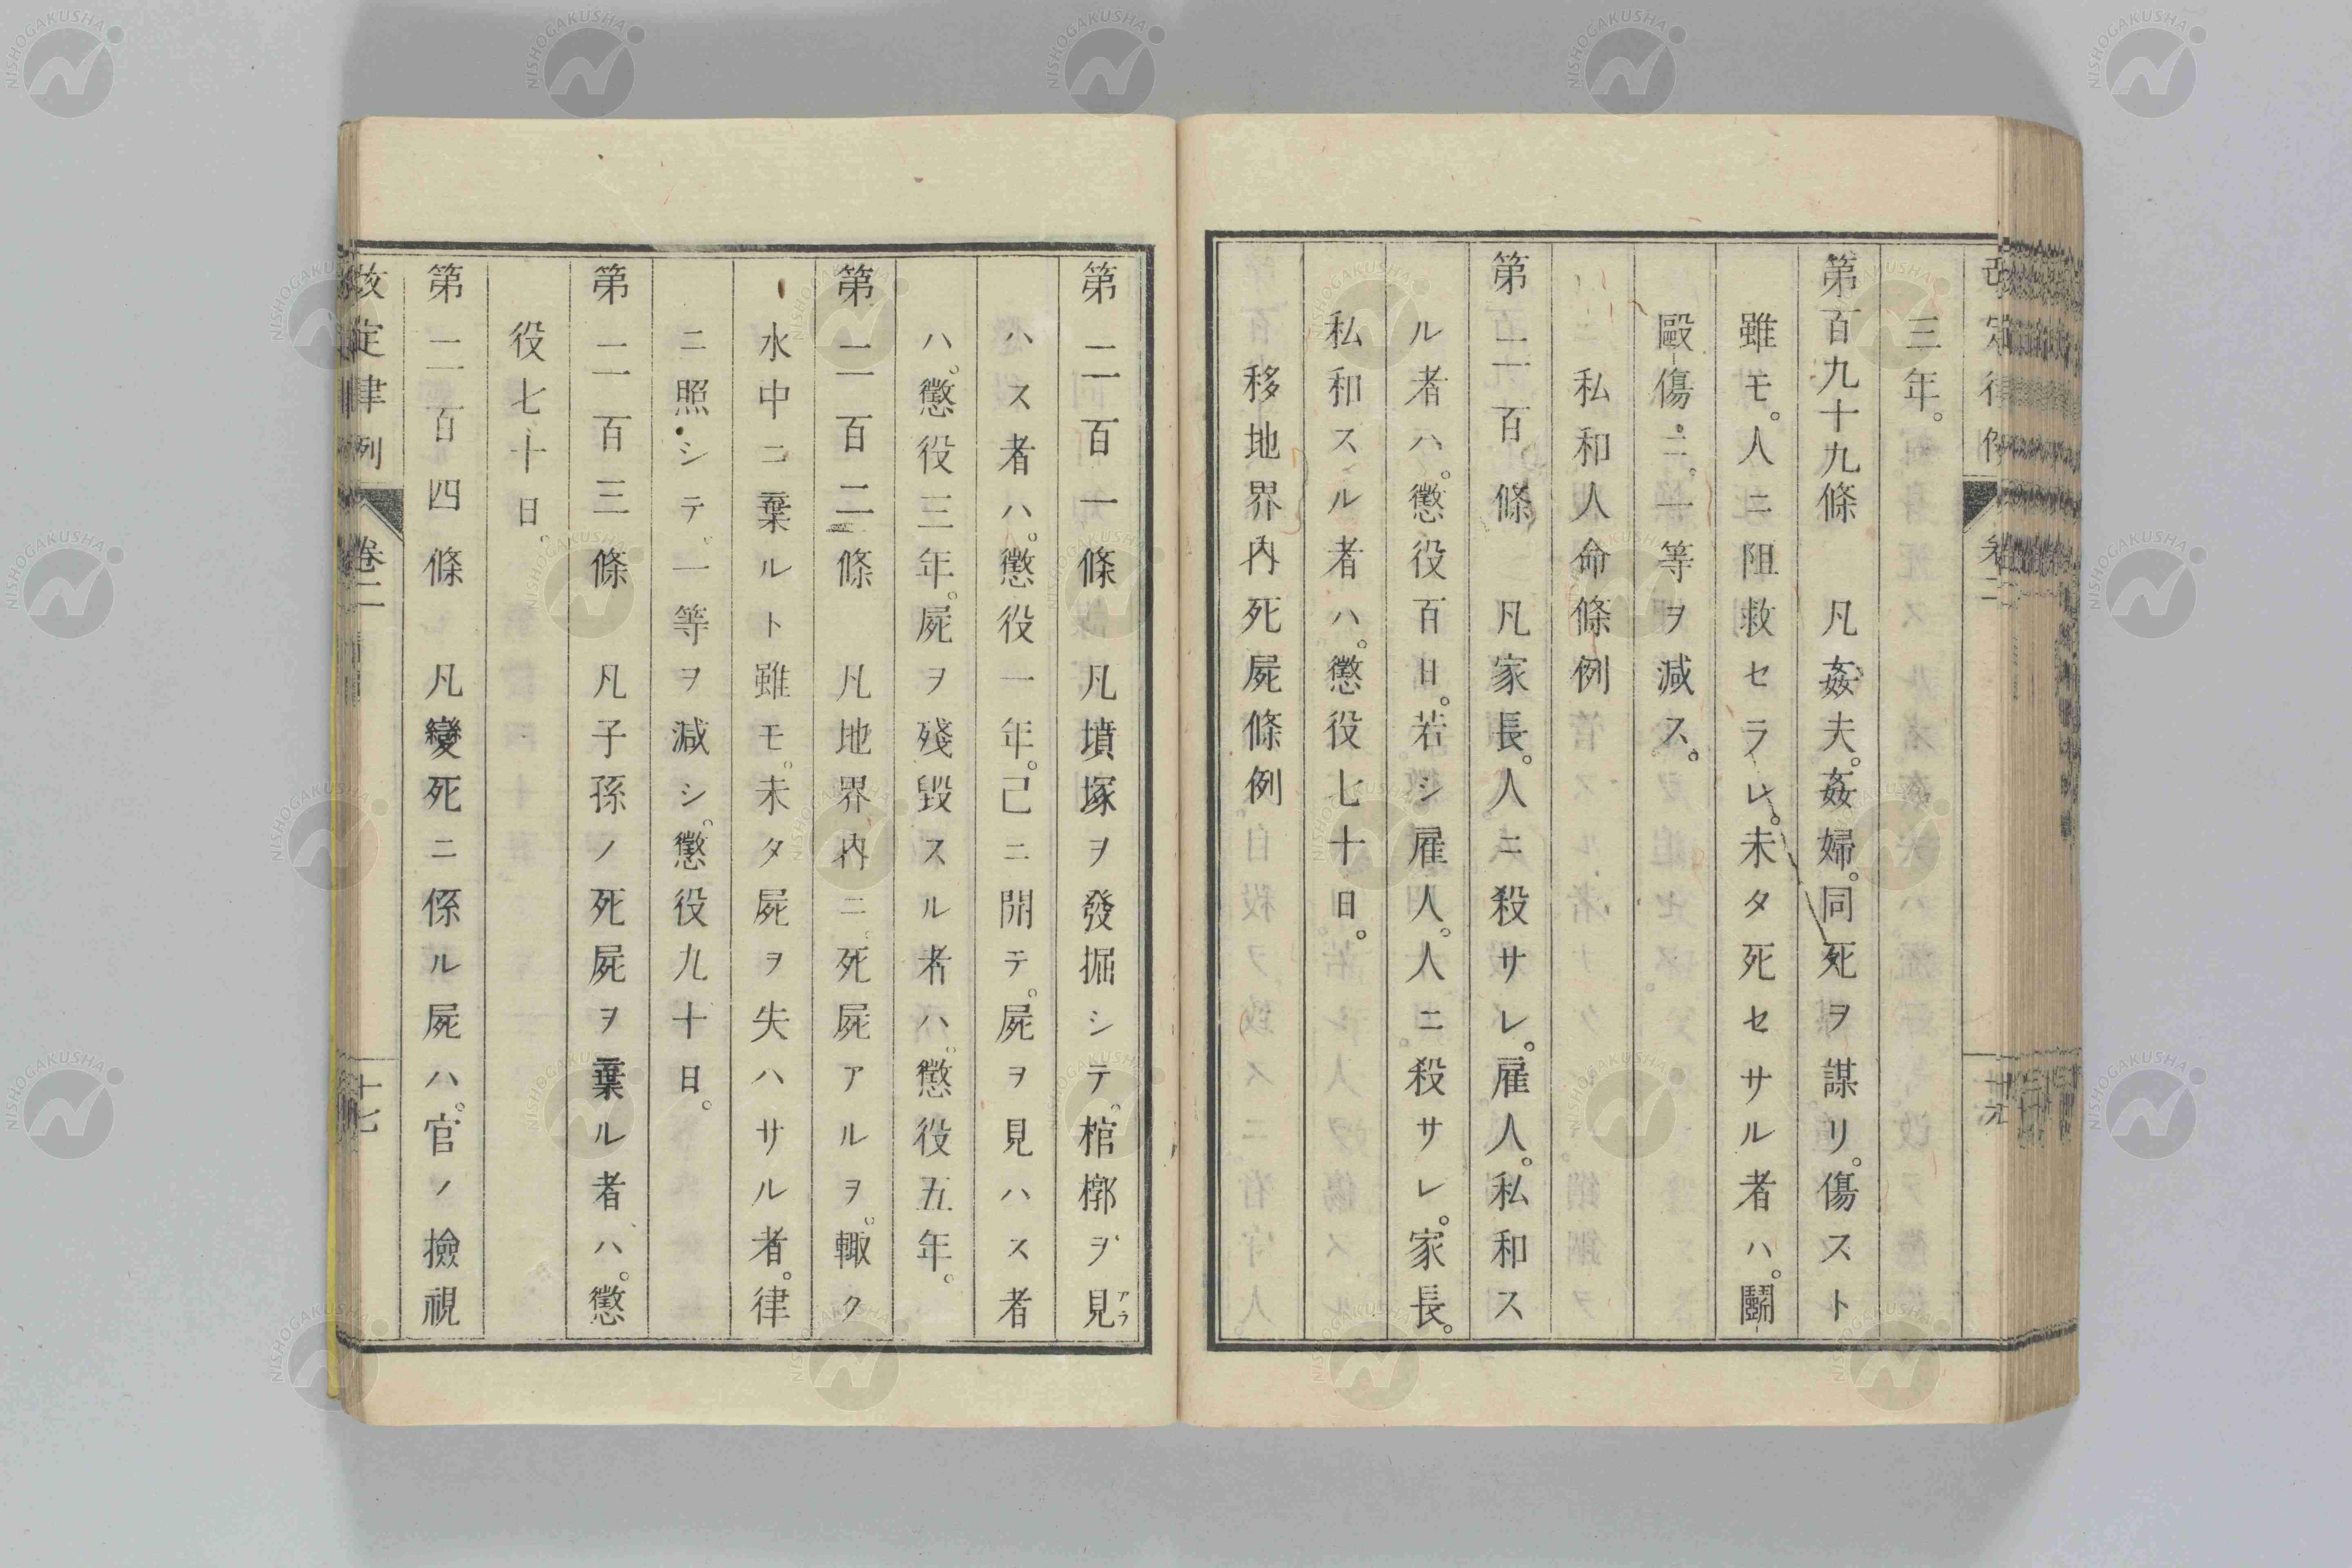 三年。
第百九十九條　凡姦夫。姦婦。同死ヲ謀リ。傷スト
雖モ。人ニ阻救セラレ。未タ死セサル者ハ。鬪
毆傷ニ。一等ヲ減ス。
私和人命條例
第二百條　凡家長。人ニ殺サレ。雇人。私和ス
ル者ハ。懲役百日。若シ雇人。人ニ殺サレ。家長。
私和スル者ハ。懲役七十日。
移地界内死屍條例
第二百一條　凡墳塚ヲ發掘シテ。棺槨ヲ見アラ
ハス者ハ。懲役一年。已ニ開テ。屍ヲ見ハス者
ハ。懲役三年。屍ヲ殘毀スル者ハ。懲役五年。
第二百二條　凡地界内ニ。死屍アルヲ。輙ク
水中ニ棄ルト雖モ。未タ屍ヲ失ハサル者。律
ニ照シテ。一等ヲ減シ。懲役九十日。
第二百三條　凡子孫ノ死屍ヲ棄ル者ハ。懲
役七十日。
第二百四條　凡變死ニ係ル屍ハ。官ノ撿視
改定律例　卷二　十七
NISHOGAKUSHA